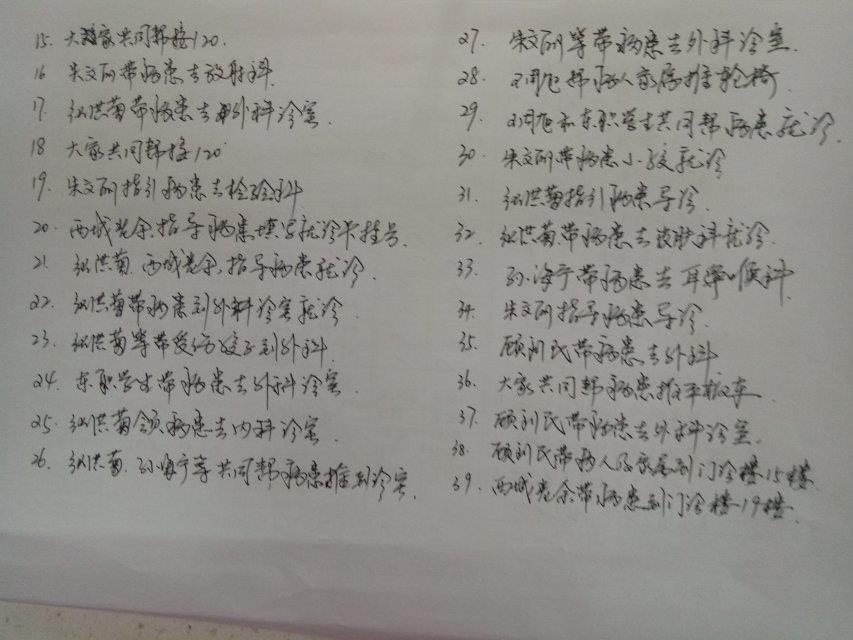 15. 大家共同帮接120.
16 朱文丽带病患去放射科
17. 纵洪菊带病患去外科诊室.
18 大家共同帮接120
19. 朱文丽指引病患去检验科
20. 西城老余指导病患填写就诊卡挂号.
21 纵洪菊.西城老余.指导病患就诊.
22. 纵洪菊带病患到外科诊室就诊
23. 纵洪菊等带受伤孩子到外科.
24. 东职学生带病患去外科诊室
25. 纵洪菊领病患去内科诊室.
26. 纵洪菊.孙海宁等共同帮病患推到诊室.
27. 朱文丽等带病患去外科诊室.
28. 帮病人家属推轮椅
29. 和东职学生共同帮病患就诊.
30. 朱文丽带病患小孩就诊
31. 纵洪菊指引病患导诊.
32. 纵洪菊带病患去皮肤科就诊.
33. 孙海宁带病患去耳鼻喉科.
34. 朱文丽指导病患导诊.
35. 顾利民带病患去外科
36. 大家共同帮病患推平板车.
37. 顾利民带病患去外科诊室.
38. 顾利民带病人及家属到门诊楼15楼.
39. 西城老余带病患到门诊楼19楼.